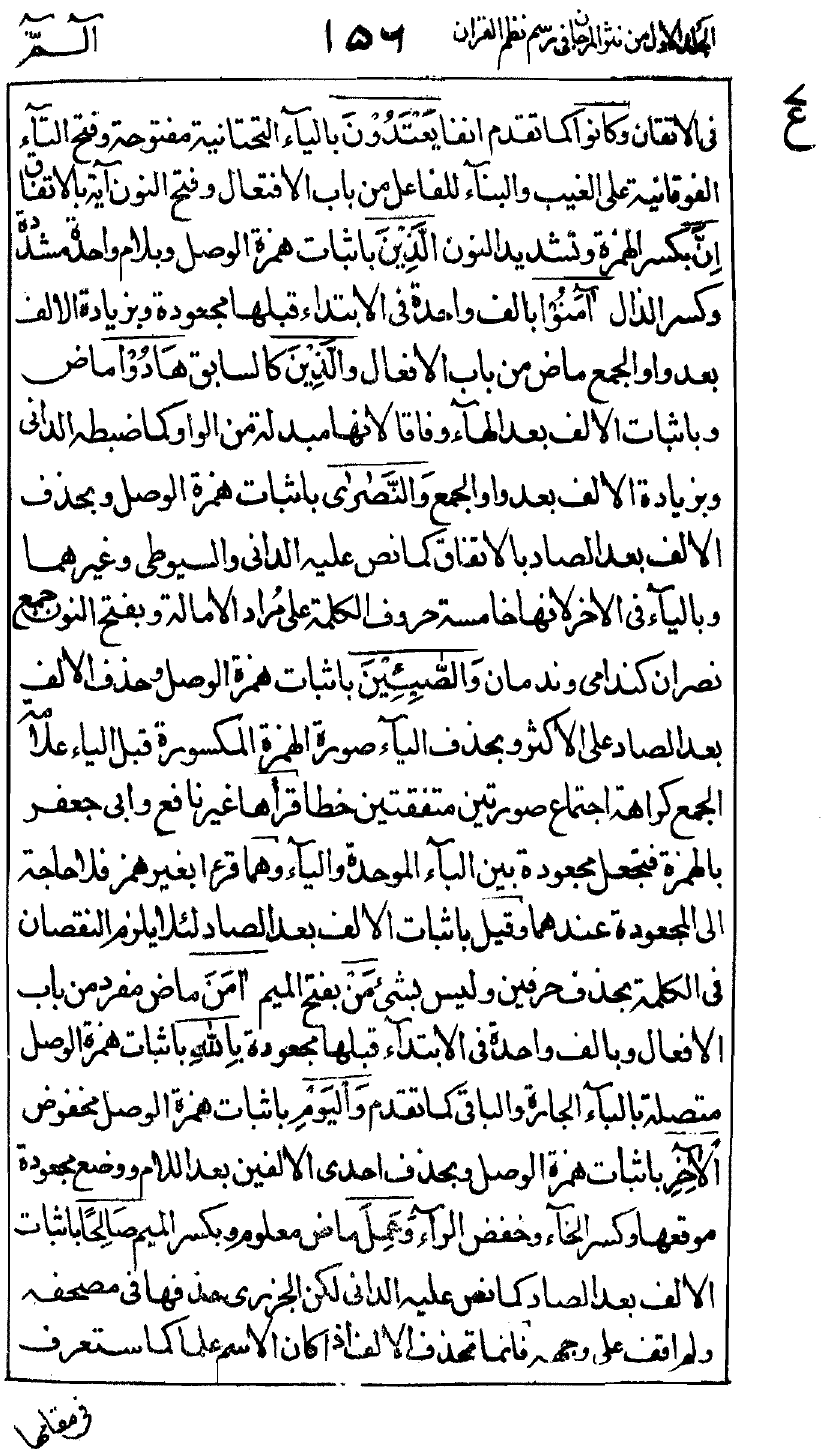 المجلد الاول من نثر المرجان في رسم نظم القران ١٥٦ الٓـــمّٓ
ع
في الاتقان وكانوا كما تقدم انفا يَعْتَدُوْنَ بالياء التحتانية مفتوحة وفتح التاء
الفوقانية على الغيب والبناء للفاعل من باب الافتعال وفتح النون آية بالاتفاق
اِنَّ بكسر الهمزة وتشديد النون الَّذِيْنَ باثبات همزة الوصل وبلام واحدة مشددة
وكسر الذال اٰمَنُوْا بالف واحدة في الابتداء قبلها مجعودة وبزيادة الالف
بعد واو الجمع ماض من باب الافعال والَّذِيْنَ كالسابق هَادُوْا ماض
وباثبات الالف بعد الهاء وفاقا لانها مبدلة من الواو كما ضبطه الداني
وبزيادة الالف بعد واو الجمع وَالنَّصٰرٰى باثبات همزة الوصل وبحذف
الالف بعد الصاد بالاتفاق كما نص عليه الداني والسيوطي وغيرهما
وبالياء في الاخر لانها خامسة حروف الكلمة على مُراد الامالة وبفتح النون جمع
نصران كندامى وندمان وَالصّٰبِـِٕيْنَ باثبات همزة الوصل وحذف الالف
بعد الصاد على الاكثر وبحذف الياء صورة الهمزة المكسورة قبل الياء علامة
الجمع كراهة اجتماع صورتين متفقتين خطا قرأها غير نافع وابي جعفر
بالهمزة فتجعل مجعودة بين الباء الموحدة والياء وهما قرءا بغير همز فلا حاجة
الى المجعودة عندهما وقيل باثبات الالف بعد الصاد لئلا يلزم النقصان
في الكلمة بحذف حرفين وليس بشئ مَنْ بفتح الميم اٰمَنَ ماض مفرد من باب
الافعال وبالف واحدة في الابتداء قبلها مجعودة بِاللهِ باثبات همزة الوصل
متصلة بالباء الجارة والباقي كما تقدم وَالْيَوْمِ باثبات همزة الوصل مخفوض
الْاٰخِرِ باثبات همزة الوصل وبحذف احدى الالفين بعد اللام ووضع مجعودة
موقعها وكسر الخاء وخفض الراء وَعَمِلَ ماض معلوم وبكسر الميم صَالِحًا باثبات
الالف بعد الصاد كما نص عليه الداني لكن الجزري حذفها في مصحفه
ولم اقف على وجهه فانما تحذف الالف اذا كان الاسم علما كما ستعرف
في مقامها